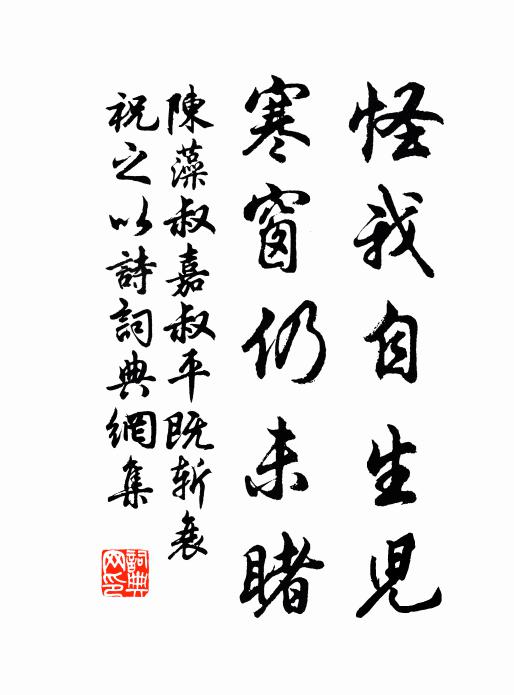 怪我自生児
寒窗仍未睹
陳藻叔嘉叔平既斬衰
祝之以詩詞典網集
詞典网印